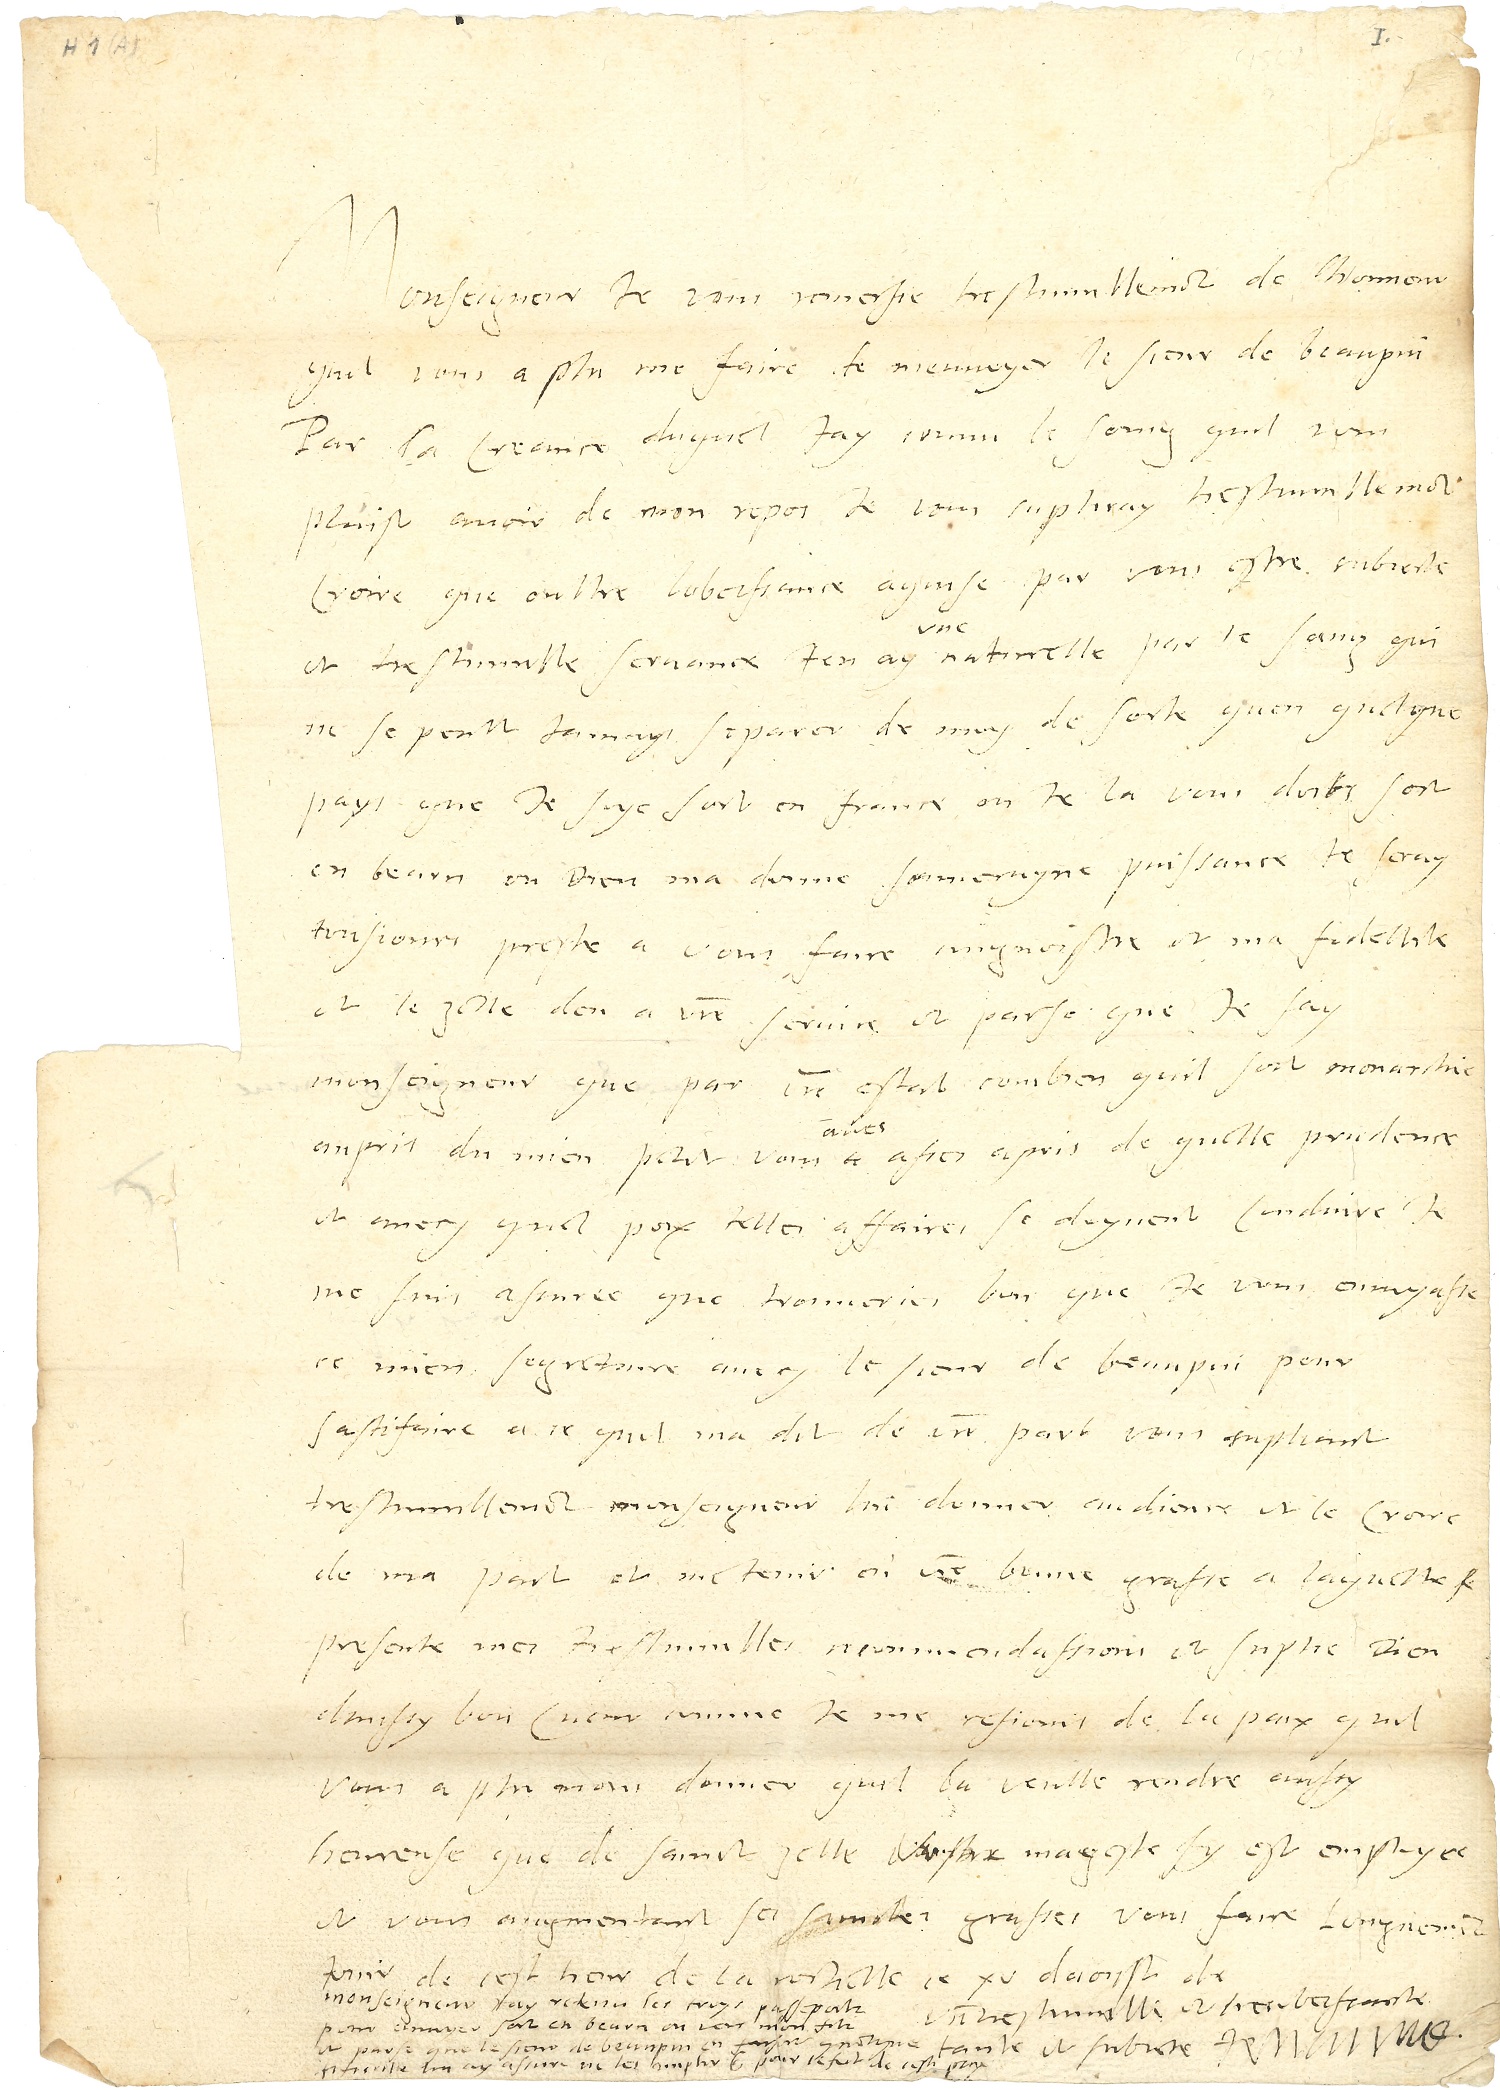 H 1 (A)
I.
Monseigneur Je vous remersie treshumblement de lhonneur
quil vous a plu me faire de menvoyer le sieur de beaupui
Par la Creance duquel Jay connu le soing quil vous
plaist avoir de mon repos Je vous supliray treshumblement
Croire que oultre lobeissance aquise par vous estre subiecte
et treshumble servante Jen ay une naturelle par le sang qui
ne se peult Jamays separer de moy de sorte quen quelque
pays que Je soye soit en france ou Je la vous doibs soit
en bearn ou Dieu ma donne souverayne puissance Je seray
tousiours preste a vous faire cognoistre et ma fidellite
et le zelle den a vre servire et parse que Je say
monseigneur que par vre estat combien quil soit monarchie
aupris du mien petit vous aves asses apris de quelle prudence
et avecq quel poix telles affaires se doyvent Conduire Je
me suis asuree que trouveries bon que Je vous envoyasse
ce mien segretaire avecq le sieur de beaupui pour
sastifaire a ce quil ma dit de vre part vous supliant
treshumblement monseigneur lui donner audience et le Croire
de ma part et me tenir en vre bonne grasse a laquelle Je
presente mes treshumbles recommendassions et suplie Dieu
daussy bon Cueur comme Je me resiouis de la paix quil
vous a plu nous donner quil la veulle rendre aussy
heureuse que de sainct zelle Vostre mageste sy est employee
et vous augmentant ses sainctes grasses vous faire longuement
Jouir de cest heur de la rochelle ce xv daoust de
monseigneur Jay retenu les troys passeports
pour envoyer soit en bearn ou vers mon filz
et parse que le sieur de beaupui en
lui ay assure ne les emplir que pour le fait de ceste paix
vre treshumble et tresobeissante
tante et subiecte Jehanne.